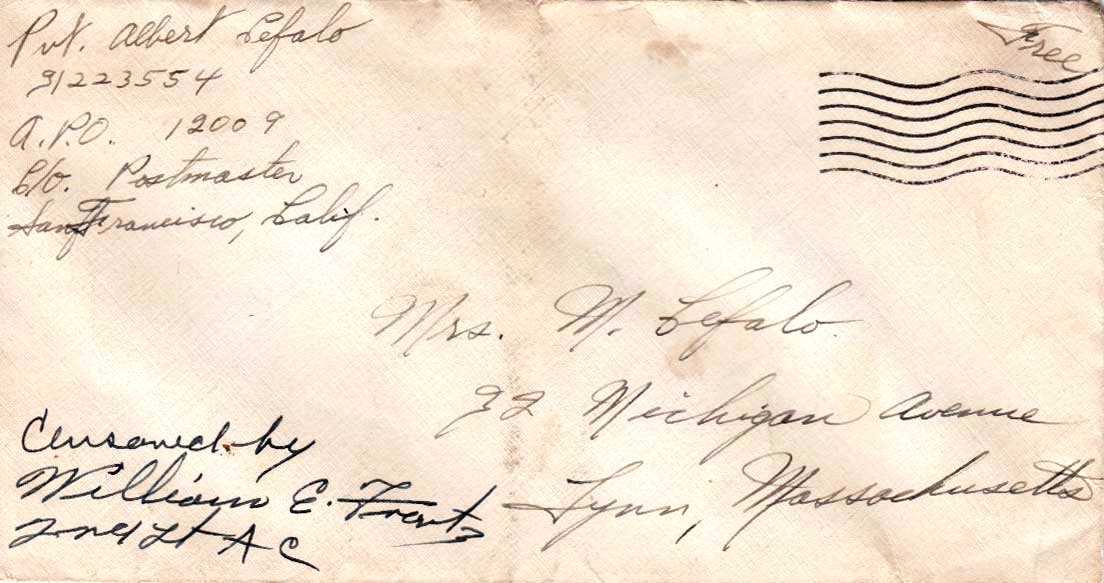 Pvt. Albert Cefalo
31223554
A.P.O. 12009
C/o. Postmaster
San Francisco, Calif.
Free
Mrs. M. Cefalo
Michigan Avenue
Lynn, Massachusetts
Censored by
William E. Frantz
2nd Lt A C